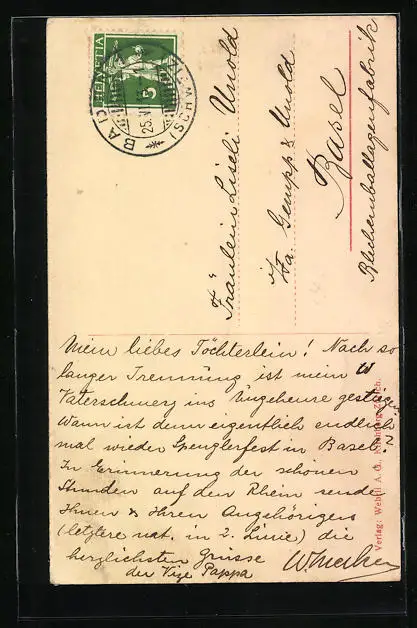 Mein liebes Töchterlein! Nach so
langer Trennung ist mein
Vaterschmerz ins Ungeheure gestiegen
Wann ist denn eigentlich endlich
mal wieder Spenglerfest in Basel?
In Erinnerung der schönen
Stunden auf dem Rhein sendet
Ihnen & Ihren Angehörigen
(letztere nat. in 2. Linie) die
herzlichsten Grüsse
der Vize Pappa
Fräulein Liseli Unold
Fa. Gempp & Unold
Basel
Blechemballagenfabrik
HELVETIA
5
(SCHWEIZ)
Verlag: Wehrli A.G., Kilchberg Zürich.